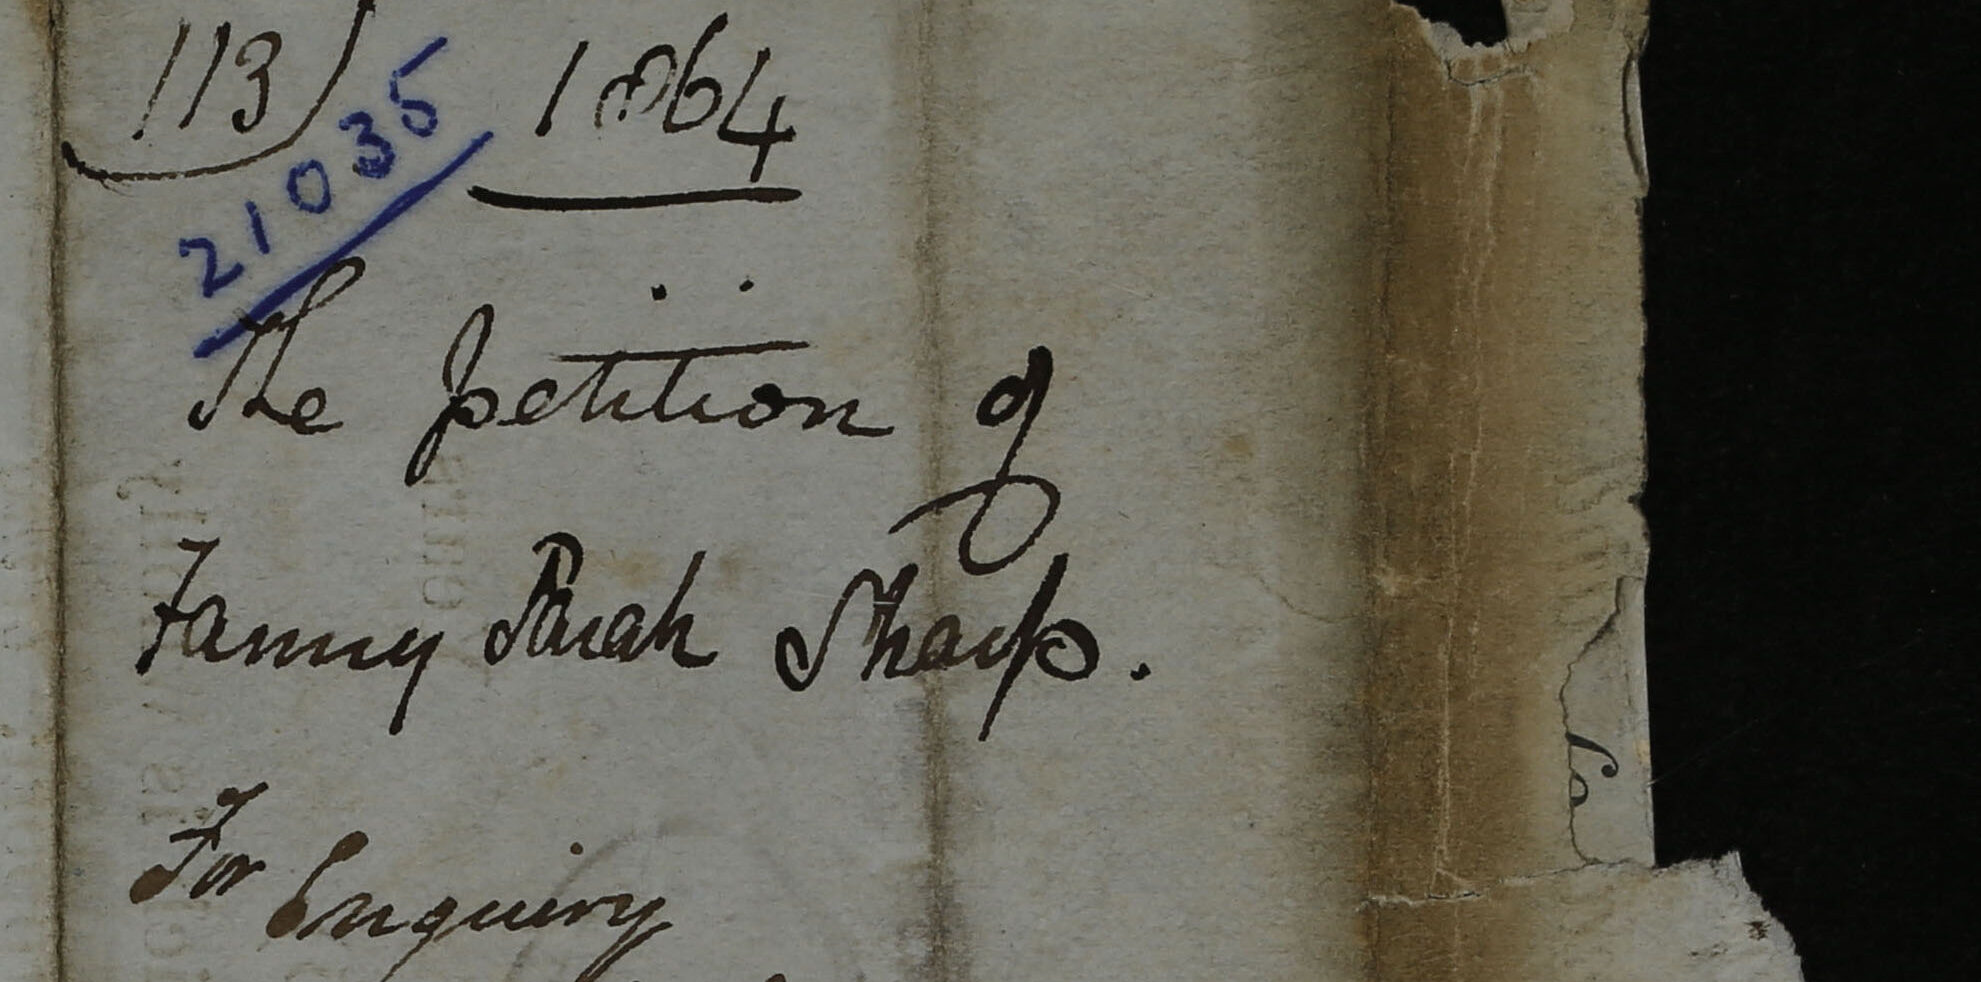 113) 1864
21035
The petition of
Fanny Sarah Sharp.
For Enquiry